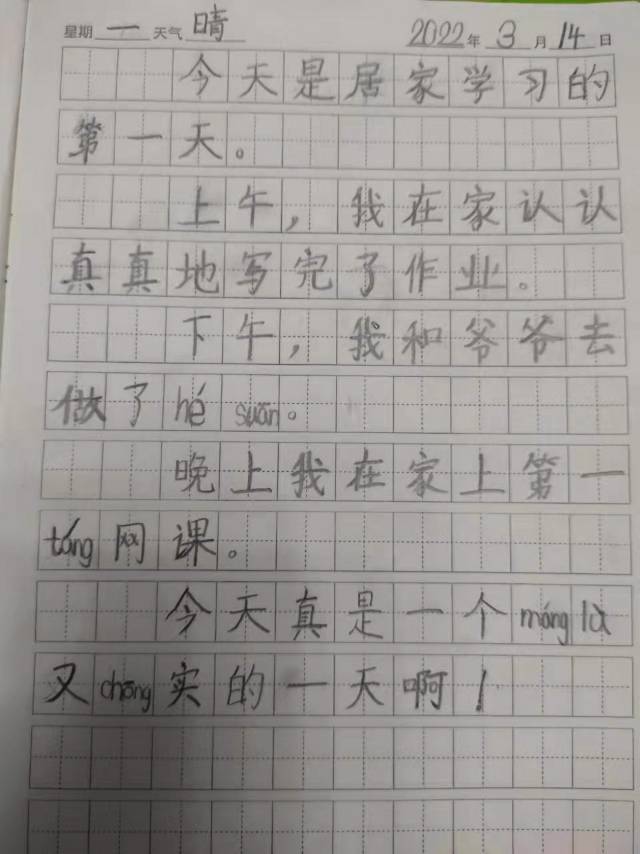 星期 一 天气 晴 2022年 3 月 14 日
今天是居家学习的
第一天。
上午，我在家认认
真真地写完了作业。
下午，我和爷爷去
做了 hé suān。
晚上我在家上第一
táng 网课。
今天真是一个 máng lù
又 chōng 实的一天啊！